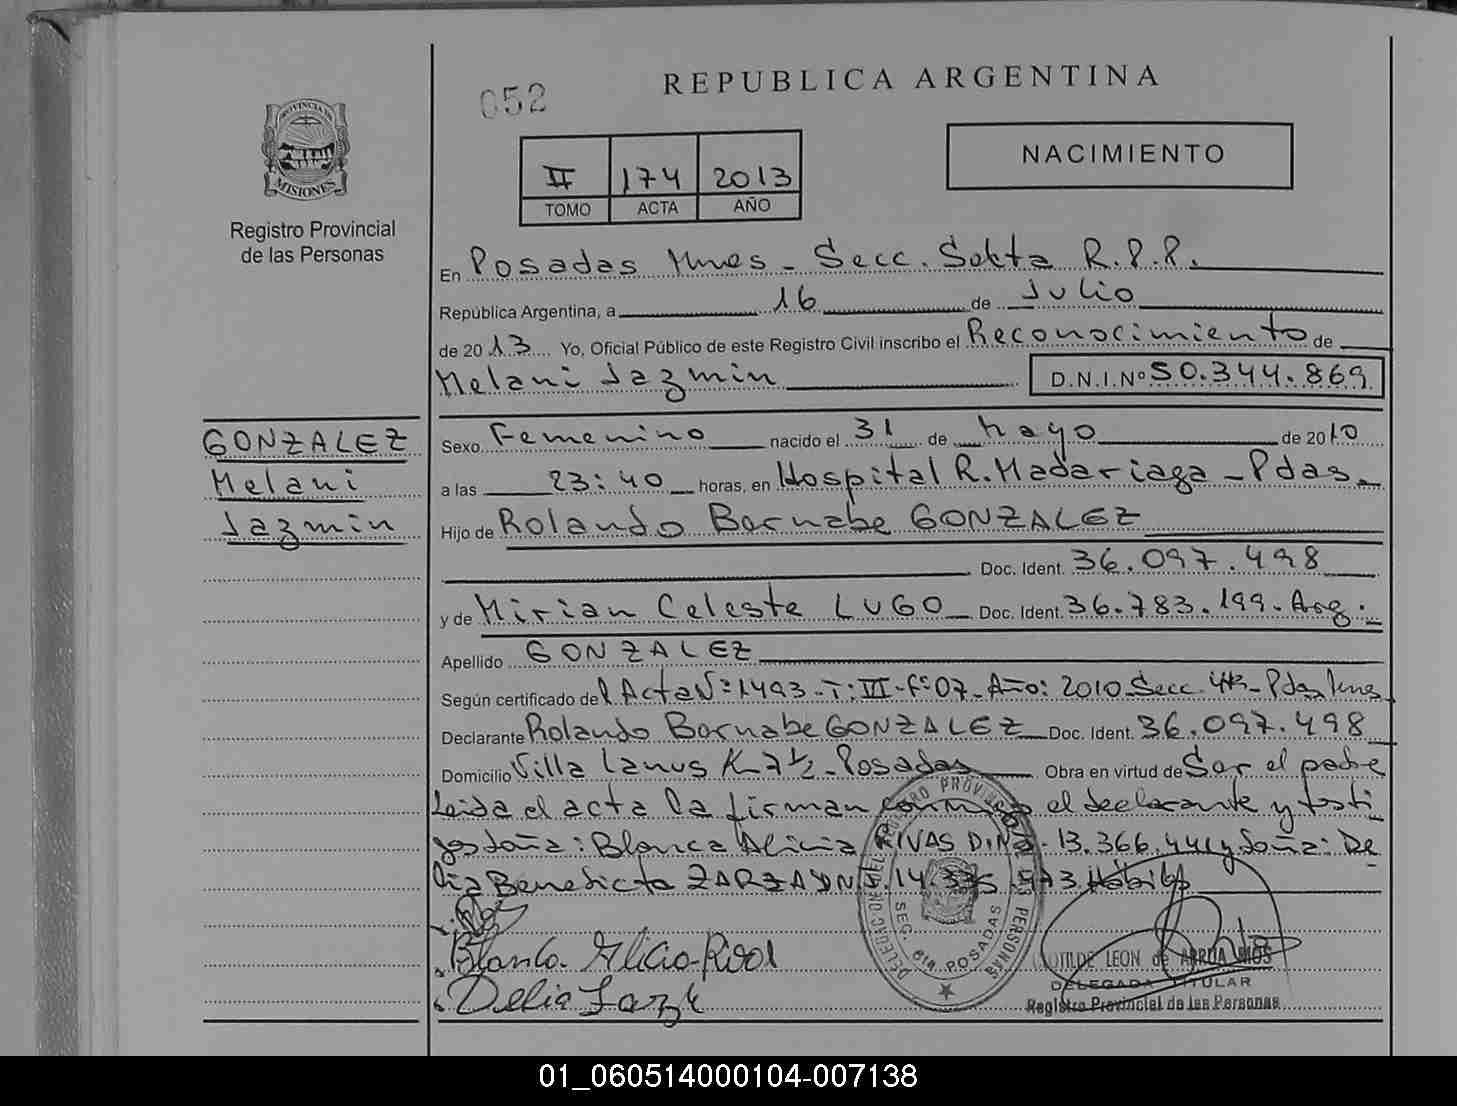 052
REPUBLICA ARGENTINA
PROVINCIA DE
MISIONES
Registro Provincial
de las Personas
II 174 2013
TOMO ACTA AÑO
NACIMIENTO
En Posadas Mnes - Secc. Sexta R.P.P.
República Argentina, a 16 de Julio
de 2013 Yo, Oficial Público de este Registro Civil inscribo el Reconocimiento de
Melani Jazmin D.N.I.Nº 50.344.869
GONZALEZ
Melani
Jazmin
Sexo Femenino nacido el 31 de Mayo de 2010
a las 23:40 horas, en Hospital R. Madariaga - Pdas.
Hijo de Rolando Bernabe GONZALEZ
Doc. Ident. 36.097.498
y de Mirian Celeste LUGO Doc. Ident. 36.783.199. Arg.
Apellido GONZALEZ
Según certificado del Acta Nº: 1493 - T: III - Fº: 07 - Año: 2010 Secc. 4ta - Pdas. Mnes
Declarante Rolando Bernabe GONZALEZ Doc. Ident. 36.097.498
Domicilio Villa Lanus K 7 1/2 - Posadas Obra en virtud de Ser el padre
Leida el acta la firman conmigo el declarante y testi
gos doña: Blanca Alicia RIVAS D.N.I. 13.366.441 y doña: De
lia Benedicta ZARZA D.N.I. 14. 973 Hábiles
Blanca Alicia Rivas
Delia Zarza
DELEGACION DEL REGISTRO PROVINCIAL DE LAS PERSONAS
SEC. 6ta. POSADAS
LEON de ARRUA RIOS
DELEGADA TITULAR
Registro Provincial de las Personas
01_060514000104-007138